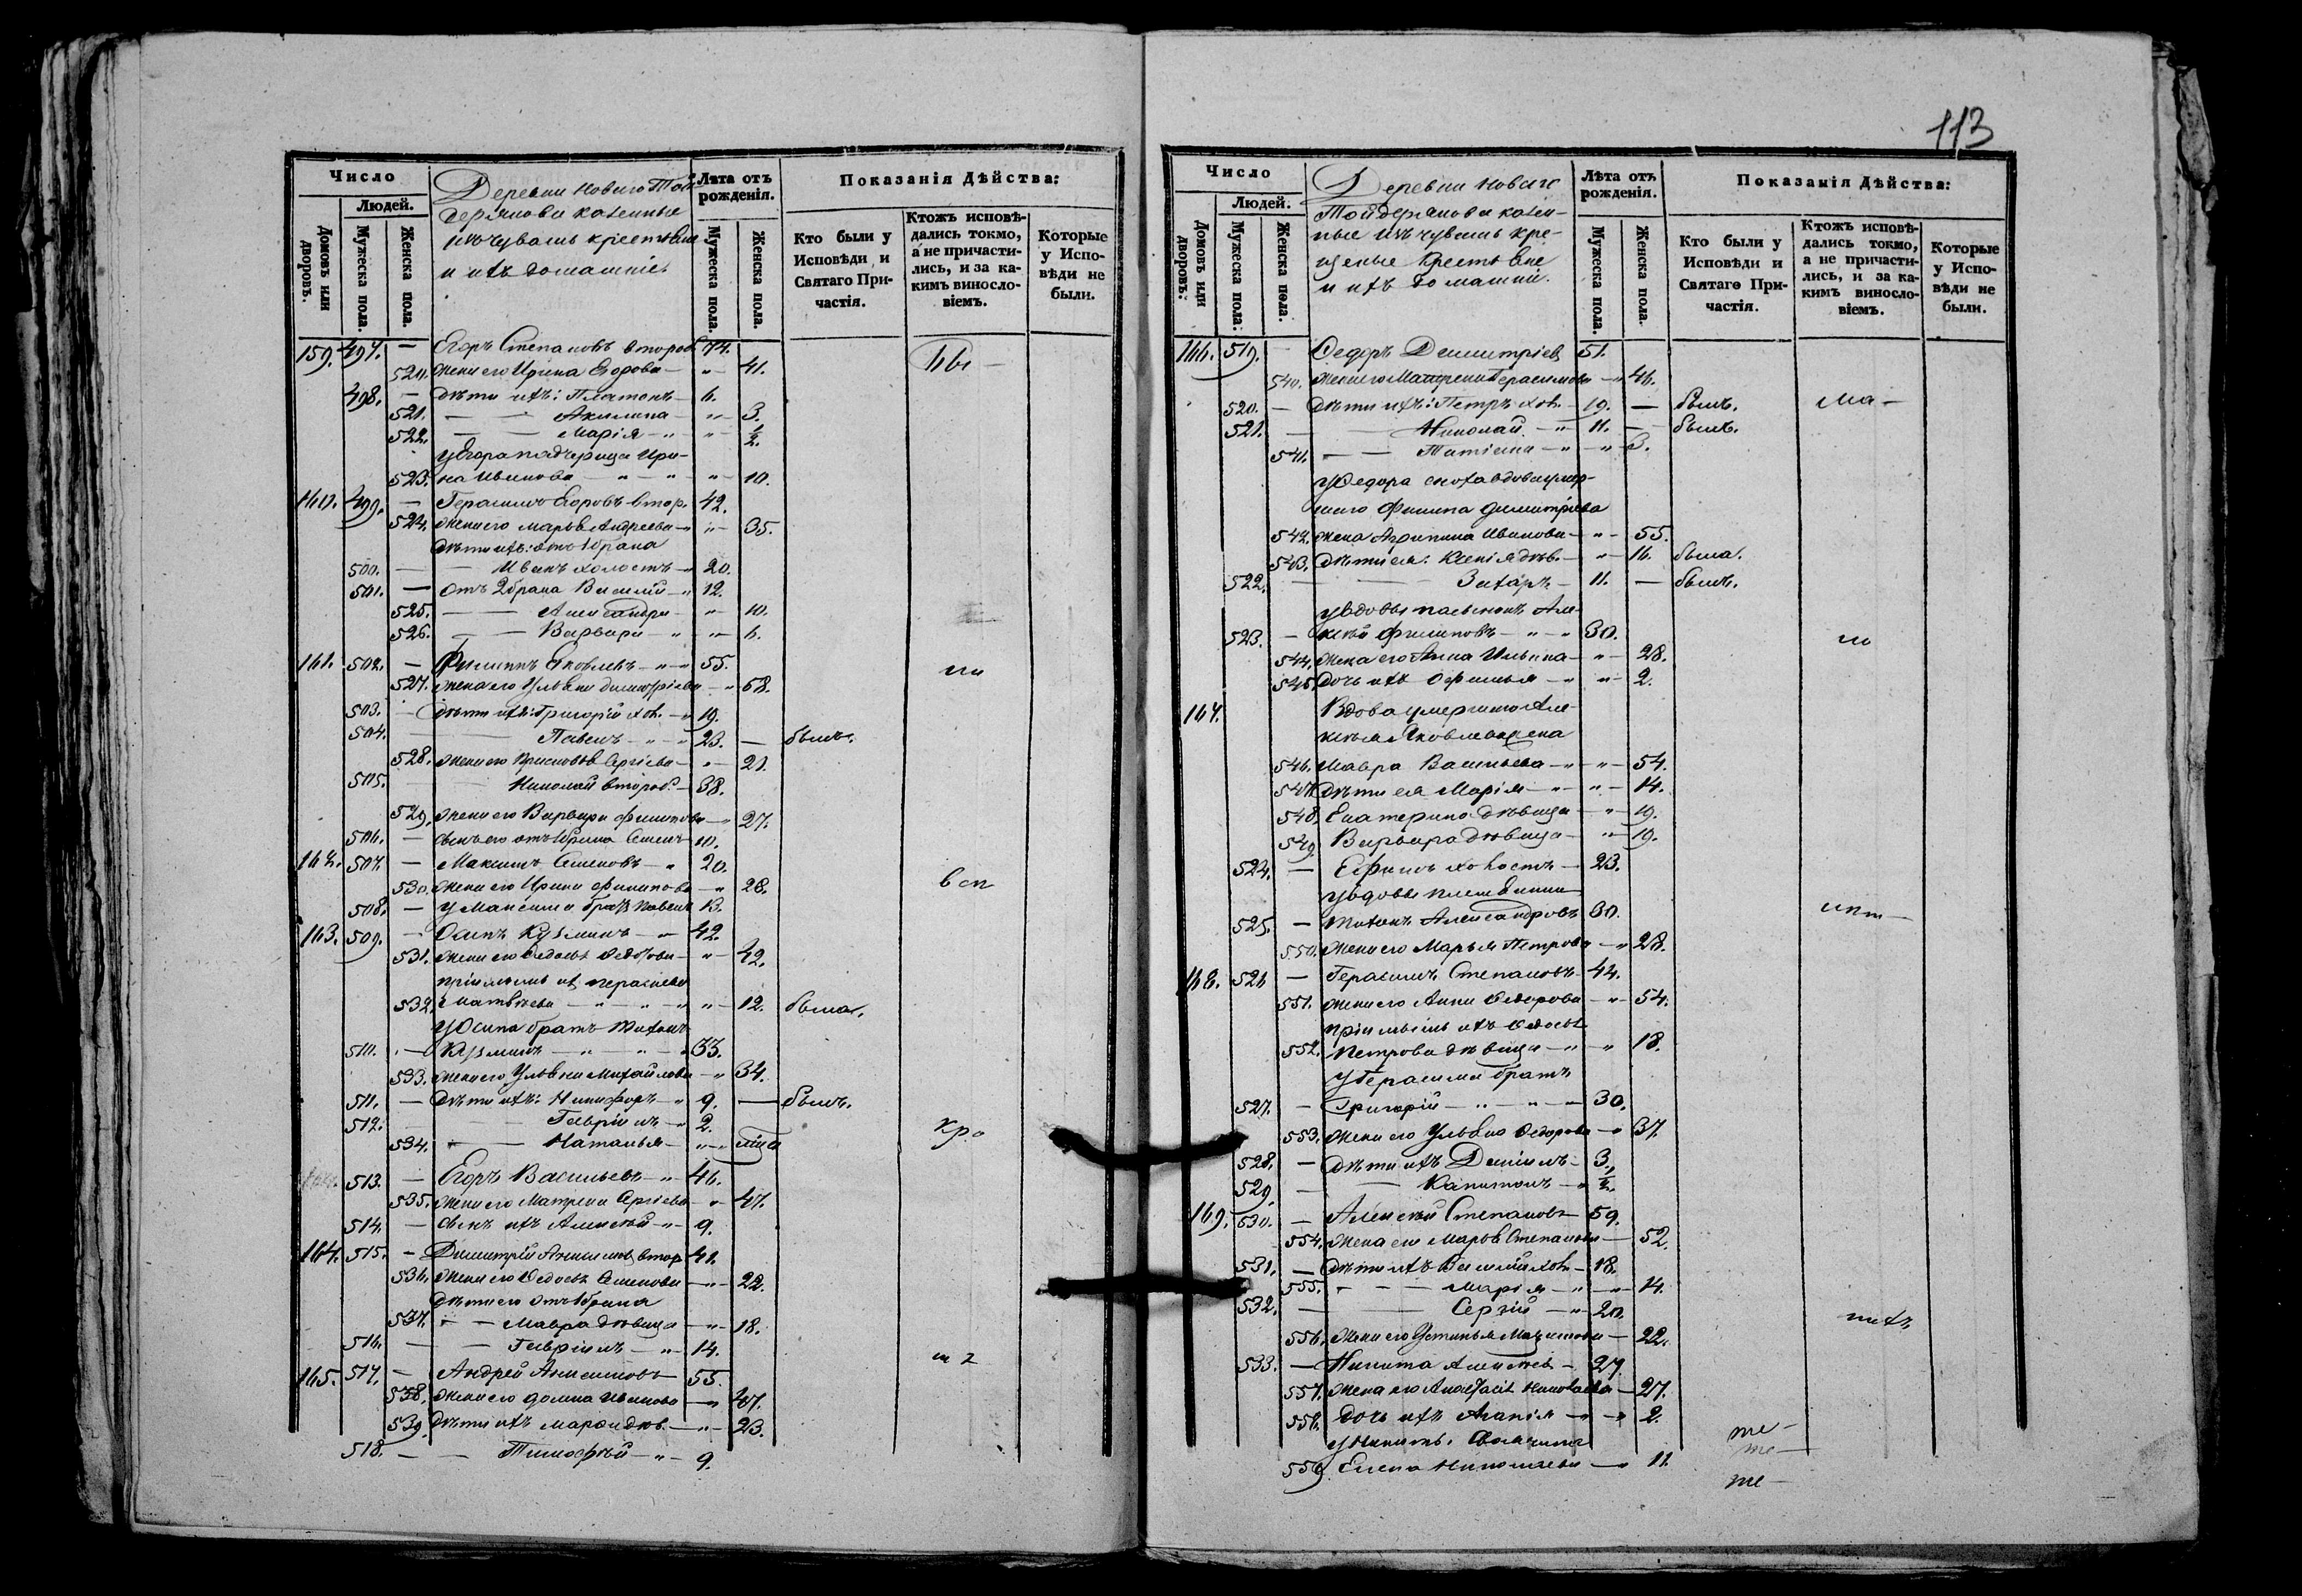 113
Число
Людей.
Домовъ или дворовъ.
Мужеска пола.
Женска пола.
Деревни Новаго Той-
дерякова казенные
изъ чувашъ крестьяне
и ихъ домашніе
Лѣта отъ рожденія.
Мужеска пола.
Женска пола.
Показанія Дѣйства:
Кто были у Исповѣди и Святаго Причастія.
Ктожъ исповѣдались токмо, а не причастились, и за какимъ винословіемъ.
Которые у Исповѣди не были.
159. 497. — Егоръ Степановъ второб. 74.
520. Жена его Ирина Егорова — 41.
498. — Дѣти ихъ: Платонъ — 6.
521. — Акилина — 3.
522. — Марія — ½.
у Егора падчерица Ири-
523. на Иванова — 10.
499. — Герасимъ Егоровъ втор. 42.
524. Жена его Марья Андреева — 35.
Дѣти ихъ: отъ 1 брака
500. — Иванъ холостъ — 20.
501. — отъ 2 брака Василій — 12.
525. — Александра — 10.
526. — Варвара — 6.
161. 502. — Филиппъ Яковлевъ — 55.
527. Жена его Ульяна Димитріева — 58.
503. — Дѣти ихъ: Григорій хол. — 19.
504. — Павелъ — 23. — былъ.
528. Жена его Сергіева — 21.
505. — Николай второб. — 38.
529. Жена его Варвара Филипова — 27.
506. — сынъ его отъ 1 брака 10.
162. 507. — Максимъ Семеновъ — 20.
530. Жена его Ирина Филипова — 28.
508. — у Максима братъ Павелъ 13.
163. 509. — Осипъ Кузминъ — 42.
531. Жена его Федосья — 42.
532. Матвѣева — 12. была.
у Осипа братъ
510. — Кузминъ — 33.
533. Жена его Ульяна Михайлова — 34.
511. — Дѣти ихъ: Никифоръ — 9. — былъ.
512. — Гавріилъ — 2.
534. — Наталья —
513. — Егоръ Васильевъ — 46.
535. Жена его Матрена Сергіева — 47.
514. — сынъ ихъ Алексѣй — 9.
164. 515. — Димитрій втор. 41.
536. Жена его Федосья Семенова — 22.
Дѣти его отъ 1 брака
537. — Мавра дѣвица — 18.
516. — Гавріилъ — 14.
165. 517. — Андрей 55.
538. Жена его Домна Иванова — 47.
539. Дѣти ихъ Марфа дѣв. — 23.
518. — Тимофѣй — 9.
Число
Людей.
Домовъ или дворовъ.
Мужеска пола.
Женска пола.
Деревни Новаго
Тойдерякова казен-
ные изъ чувашъ кре-
щеные крестьяне
и ихъ домашніе.
Лѣта отъ рожденія.
Мужеска пола.
Женска пола.
Показанія Дѣйства:
Кто были у Исповѣди и Святаго Причастія.
Ктожъ исповѣдались токмо, а не причастились, и за какимъ винословіемъ.
Которые у Исповѣди не были.
166. 519. — Федоръ Димитріевъ 51.
540. Жена его Матрена Герасимова — 46.
520. — Дѣти ихъ: Петръ хол. — 19. — былъ.
521. — Николай — 11. — былъ.
541. — Татіана — 3.
у Федора сноха вдова умер-
шаго Филипа Димитріева
542. Жена Агрипина Иванова — 55.
543. Дѣти ея: Ксенія дѣв. — 16. была.
522. — Захаръ — 11. — былъ.
у вдовы пасынокъ Але-
523. — ксѣй Филиповъ — 30.
544. Жена его Анна Ильина — 28.
545. Дочь ихъ Офимья — 2.
167. Вдова умершаго Але-
ксѣя Яковлева жена
546. Мавра Васильева — 54.
547. Дѣти ея Марія — 14.
548. Екатерина дѣвица — 19.
549. Варвара дѣвица — 19.
524. — Ефимъ холостъ — 23.
у вдовы племянникъ
525. — Александровъ 30.
550. Жена его Марья Петрова — 28.
168. 526. — Герасимъ Степановъ — 44.
551. Жена его Анна Федорова — 54.
пріимышъ ихъ Федосья
552. Петрова дѣвица — 18.
у Герасима братъ
527. — Григорій — 30.
553. Жена его Ульяна Федорова — 37.
528. — Дѣти ихъ Даніилъ — 3.
529. — Капитонъ — ½.
169. 530. — Алексѣй Степановъ 59.
554. Жена его Марья Степанова — 52.
531. — Дѣти ихъ Василій хол. — 18.
555. — Марія — 14.
532. — Сергій — 20.
556. Жена его Устинья — 22.
533. — Никита Алексѣевъ — 27.
557. Жена его Анастасія Николаева — 27.
558. Дочь ихъ Агапія — 2.
у Никиты
559. Елена Николаева — 11.